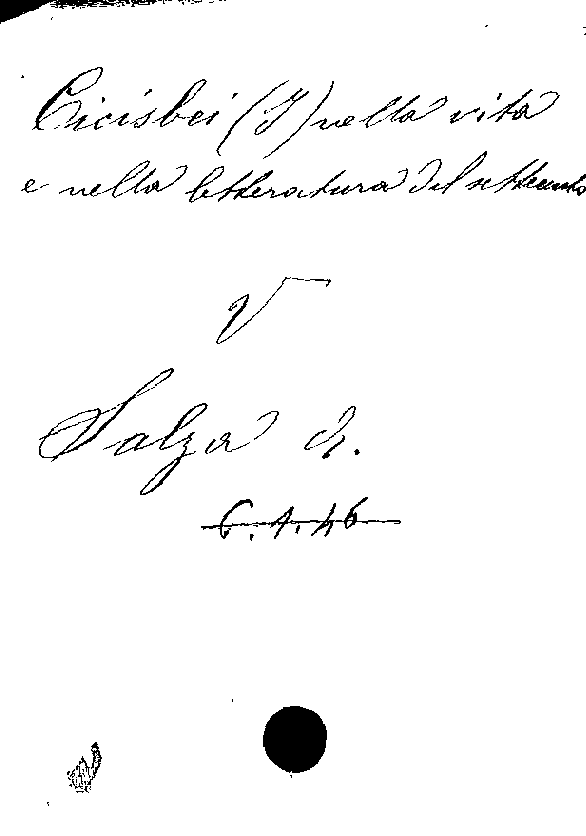 Cicisbei (I) nella vita
e nella letteratura del settecento
V
Salza A.
6.1.46